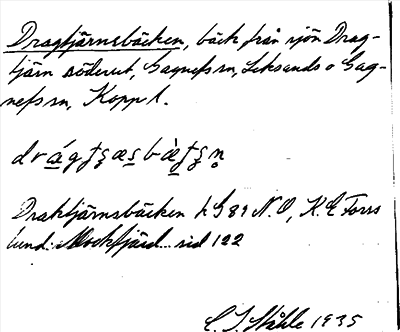 Dragtjärnsbäcken, bäck från sjön Drag-
tjärn söderut, Gagnefs sn, Leksands o Gag-
nefs sn, Kopp l.
Draktjärnsbäcken h G 89 N.O, K.E Forss
lund: Mockfjärd sid 122
C. I. Ståhle 1935